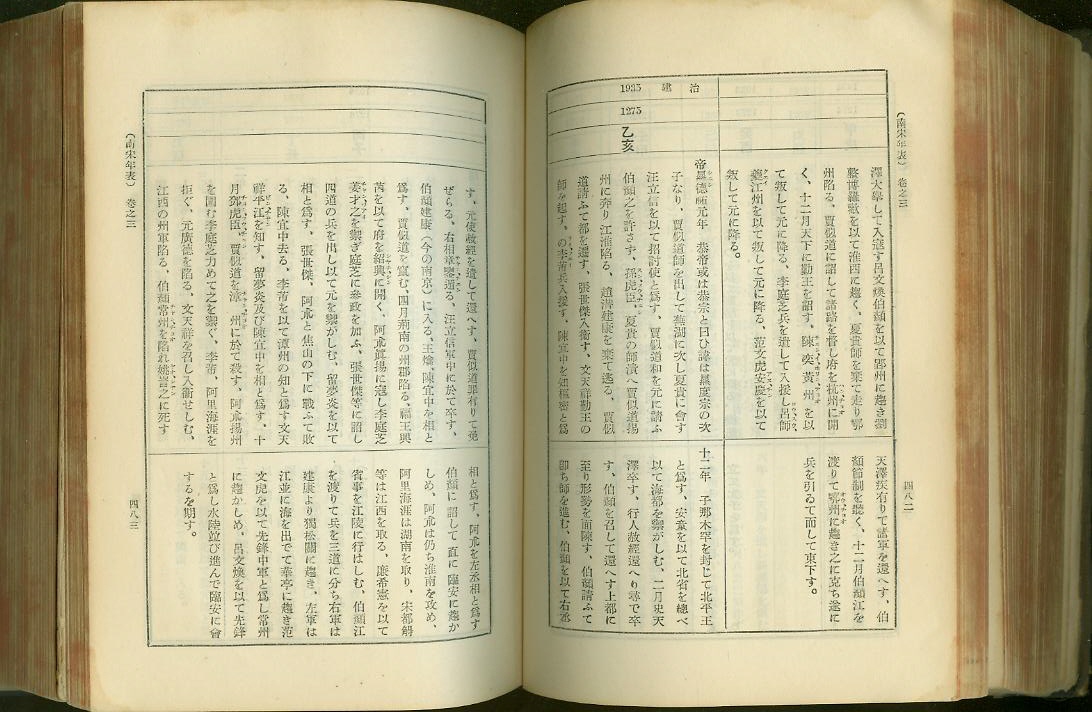 (南宋年表) 卷之三
四八二
澤大擧して入寇す呂文煥伯顏を以て郢州に趨き劉
整博羅歡を以て淮西に趨く、夏貴師を棄て走り鄂
州陷る、賈似道に詔して諸路を督し府を杭州に開
く、十二月天下に勤王を詔す、陳奕黃州を以
て叛して元に降る、李庭芝兵を遣して入援し呂師
夔江州を以て叛して元に降る、范文虎安慶を以て
叛して元に降る。
天澤疾有りて諸軍を還へす、伯
顏節制を聽く、十二月伯顏江を
渡りて鄂州に趨き之に克ち遂に
兵を引ゐて而して東下す。
1935 建治
1275
乙亥
帝㬎德祐元年 恭帝或は恭宗と曰ひ諱は㬎度宗の次
子なり、賈似道師を出して蕪湖に次し夏貴に會す
汪立信を以て招討使と爲す、賈似道和を元に請ふ
伯顏之を許さず、孫虎臣、夏貴の師潰へ賈似道揚
州に奔り江淮陷る、趙溍建康を棄て遁る、賈似
道請ふて都を遷す、張世傑入衞す、文天祥勤王の
師を起す、の李芾兵入援す、陳宜中を知樞密と爲
十二年 子那木罕を封じて北平王
と爲す、安童を以て北省を總べ
以て海都を禦がしむ、二月史天
澤卒す、行人赦經還へり尋で卒
す、伯顏を召して還へす上都に
至り形勢を面陳す、伯顏請ふて
卽ち師を進む、伯顏を以て右丞
す、元使赦經を遣して還へす、賈似道罪有りて免
ぜらる、右相章鑒遁る、汪立信軍中に於て卒す、
伯顏建康(今の南京)に入る、王爚、陳宜中を相と
爲す、賈似道を竄む、四月荊南の州郡陷る、福王與
芮を以て府を紹興に開く、阿朮眞揚に寇し李庭芝
姜才之を禦ぎ庭芝に參政を加ふ、張世傑等に詔し
四道の兵を出し以て元を禦がしむ、留夢炎を以て
相と爲す、張世傑、阿朮と焦山の下に戰ふて敗
る、陳宜中去る、李芾を以て潭州の知と爲す文天
祥平江を知す、留夢炎及び陳宜中を相と爲す、十
月鄭虎臣、賈似道を漳州に於て殺す、阿朮揚州
を圍む李庭芝力めて之を禦ぐ、李芾、阿里海涯を
拒ぐ、元廣德を陷る、文天祥を召し入衞せしむ、
江西の州軍陷る、伯顏常州を陷れ姚訔之に死す
相と爲す、阿朮を左丞相と爲す
伯顏に詔して直に臨安に趨か
しめ、阿朮は仍ち淮南を攻め、
阿里海涯は湖南を取り、宋都䚟
等は江西を取る、廉希憲を以て
省事を江陵に行はしむ、伯顏江
を渡りて兵を三道に分ち右軍は
建康より獨松關に趨き、左軍は
江並に海を出でて華亭に趨き范
文虎を以て先鋒中軍と爲し常州
に趨かしめ、呂文煥を以て先鋒
と爲し水陸竝び進んで臨安に會
するを期す。
(南宋年表) 卷之三
四八三